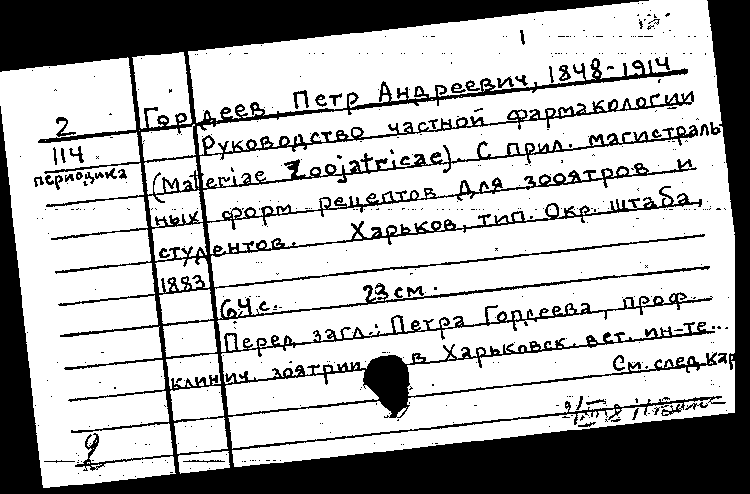 1
2
114
периодика
Гордеев, Петр Андреевич, 1848-1914
Руководство частной фармакологии
(Materiae Zoojatricae). С прил. магистраль-
ных форм рецептов для зооятров и
студентов. Харьков, тип. Окр. штаба,
1883
64 с. 23 см.
Перед загл.: Петра Гордеева, проф.
клинич. зоятрии в Харьковск. вет. ин-те..
См. след. кар
9